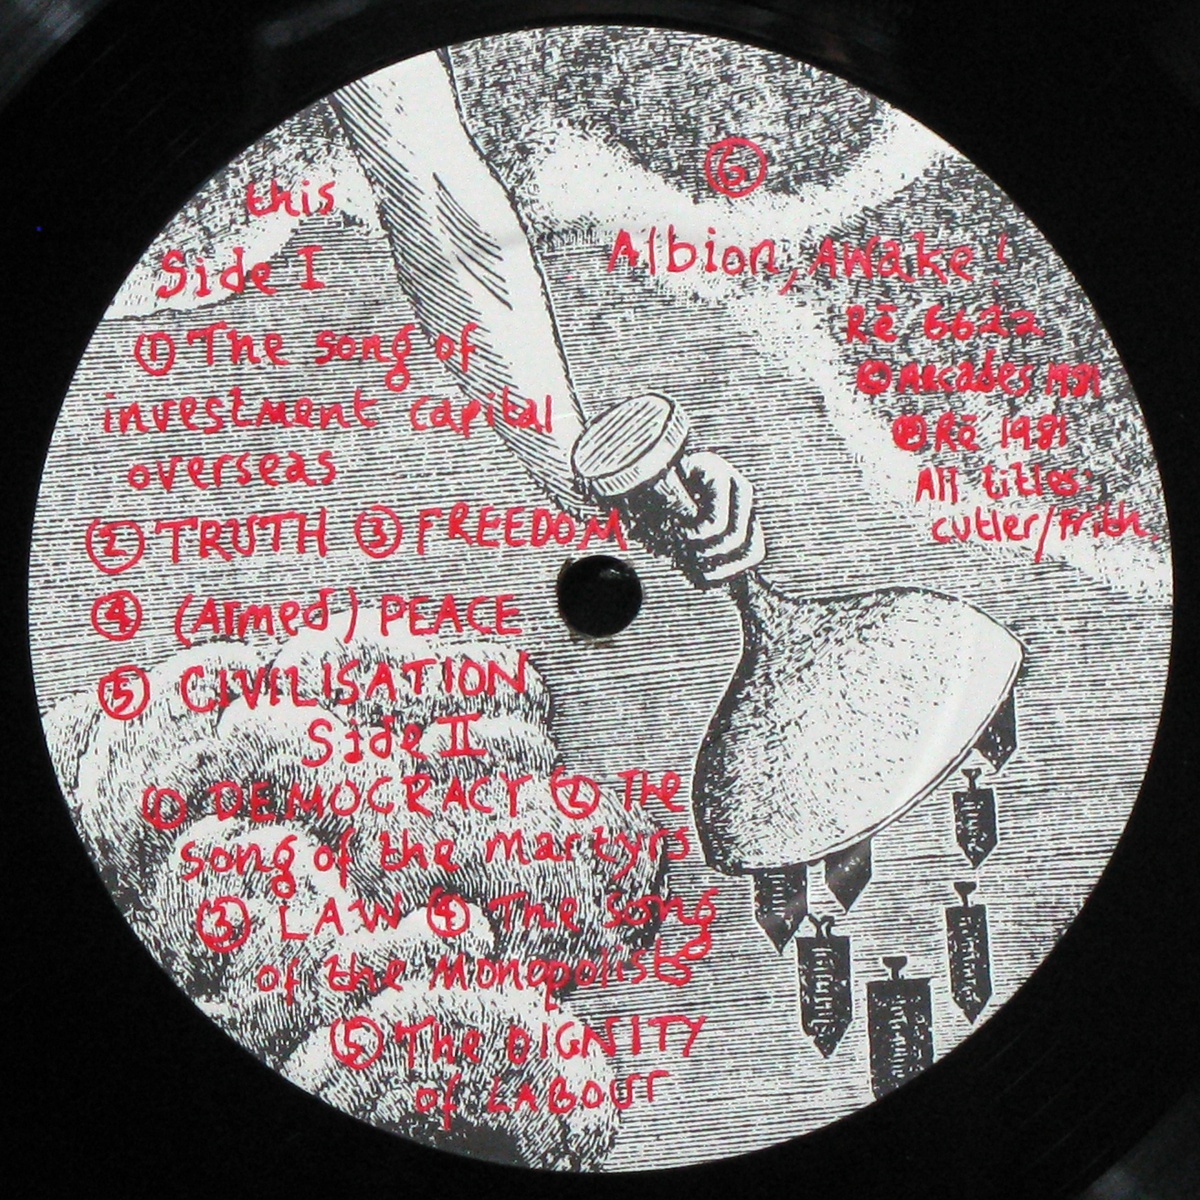 this
Side I
① The song of
investment capital
overseas
② TRUTH ③ FREEDOM
④ (Armed) PEACE
⑤ CIVILISATION
Side II
① DEMOCRACY ② The
song of the martyrs
③ LAW ④ The song
of the Monopolists
⑤ The DIGNITY
of LABOUR
⑥
Albion, AWake!
Rē 6622
© Arcades 1981
℗ Rē 1981
All titles:
cutler/Frith